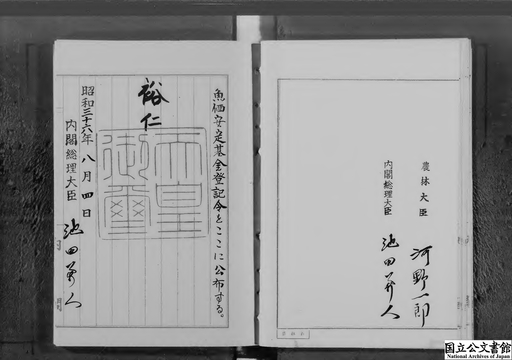 魚価安定基金登記令をここに公布する。
裕仁
天皇御璽
昭和三十六年八月四日
内閣総理大臣 池田勇人
農林大臣 河野一郎
内閣総理大臣 池田勇人
国立公文書館
National Archives of Japan